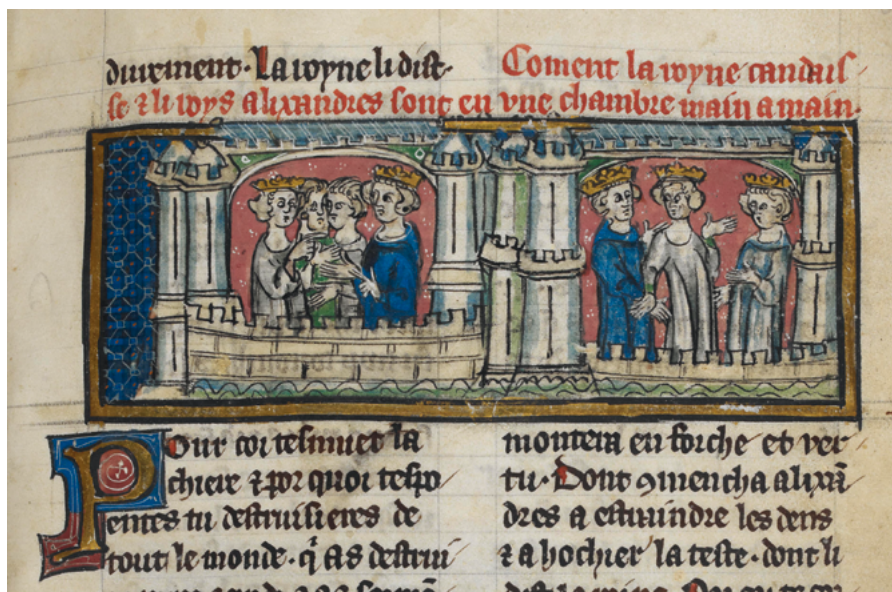 durement. La royne li dist.
Coment la royne candais
se ⁊ li roys alixandres sont en vne chambre main a main.
Pour coi tesmuet la
chiere ⁊ por quoi tespo
entes tu destruisieres de
tout le monde. q̃ as destrui
montera en forche et ver
tu. Dont ꝯmencha alixã
dres a estraindre les dens
⁊ a hochier la teste. dont li